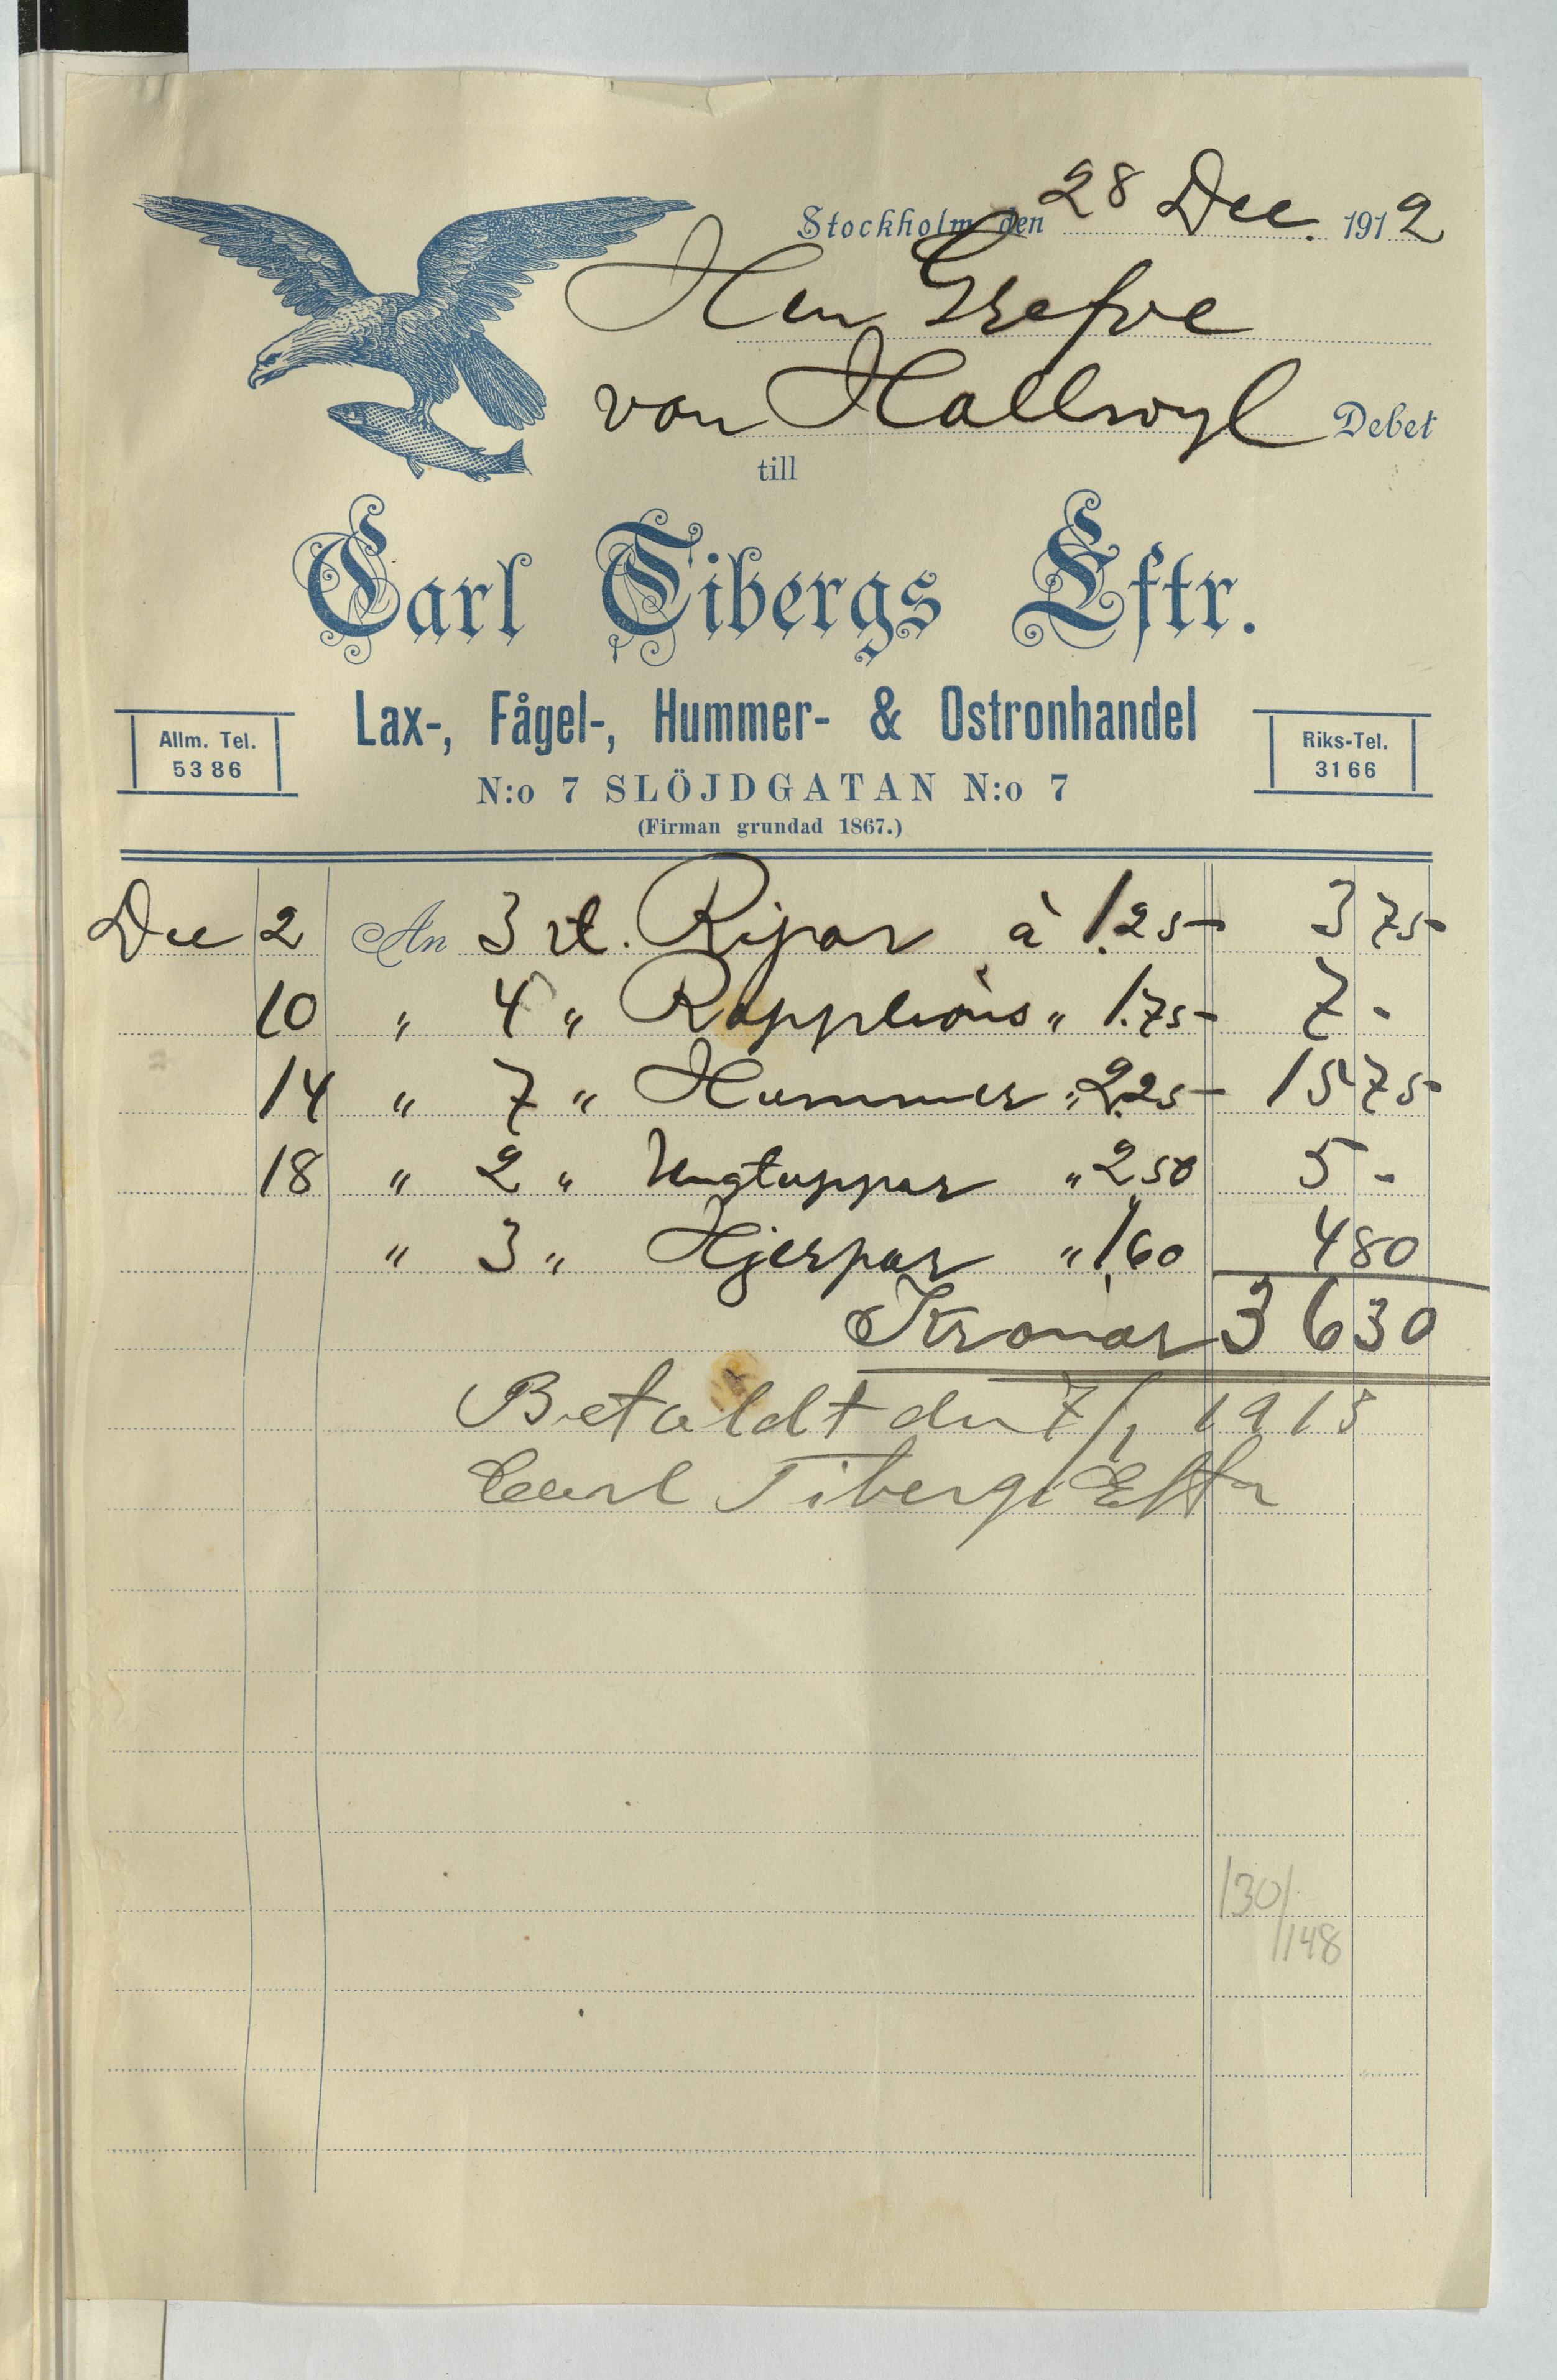 Stockholm den 28 Dec. 1912
Herr Grefve
von Hallwyl Debet
till
Carl Tibergs Eftr.
Lax-, Fågel-, Hummer- & Ostronhandel
Allm. Tel.
5386
Riks-Tel.
3166
N:o 7 SLÖJDGATAN N:o 7
(Firman grundad 1867.)
Dec 2 An 3 st. Ripor à 1.25 3 75
10 " 4 " Rapphöns " 1.75 7 -
14 " 7 " Hummer " 2.25 15 75
18 " 2 " Ungtuppar " 2,50 5 -
" 3 " Hjerpar " 1,60 4 80
Kronor 36 30
Betaldt den 7/1 1913
Carl Tibergs Eftr
130/
148